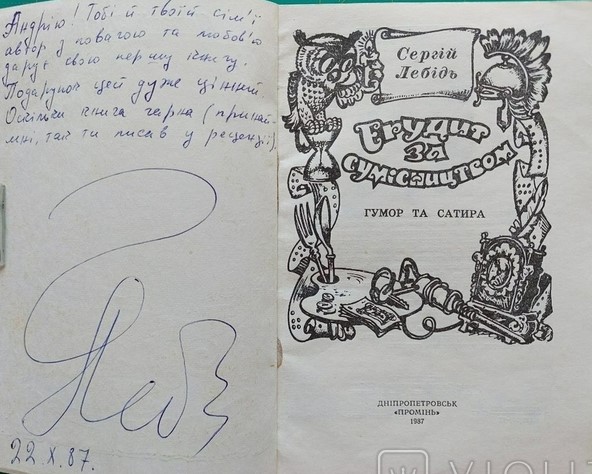 Андрію! Тобі й твоїй сім'ї
автор з повагою та любов'ю
дарує свою першу книгу.
Подарунок цей дуже цінний.
Оскільки книга гарна (принай-
мні, так ти писав у рецензії).
Леб
22.X.87.
Сергій
Лебідь
Ерудит
за
сумісництвом
ГУМОР ТА САТИРА
ДНІПРОПЕТРОВСЬК
«ПРОМІНЬ»
1987